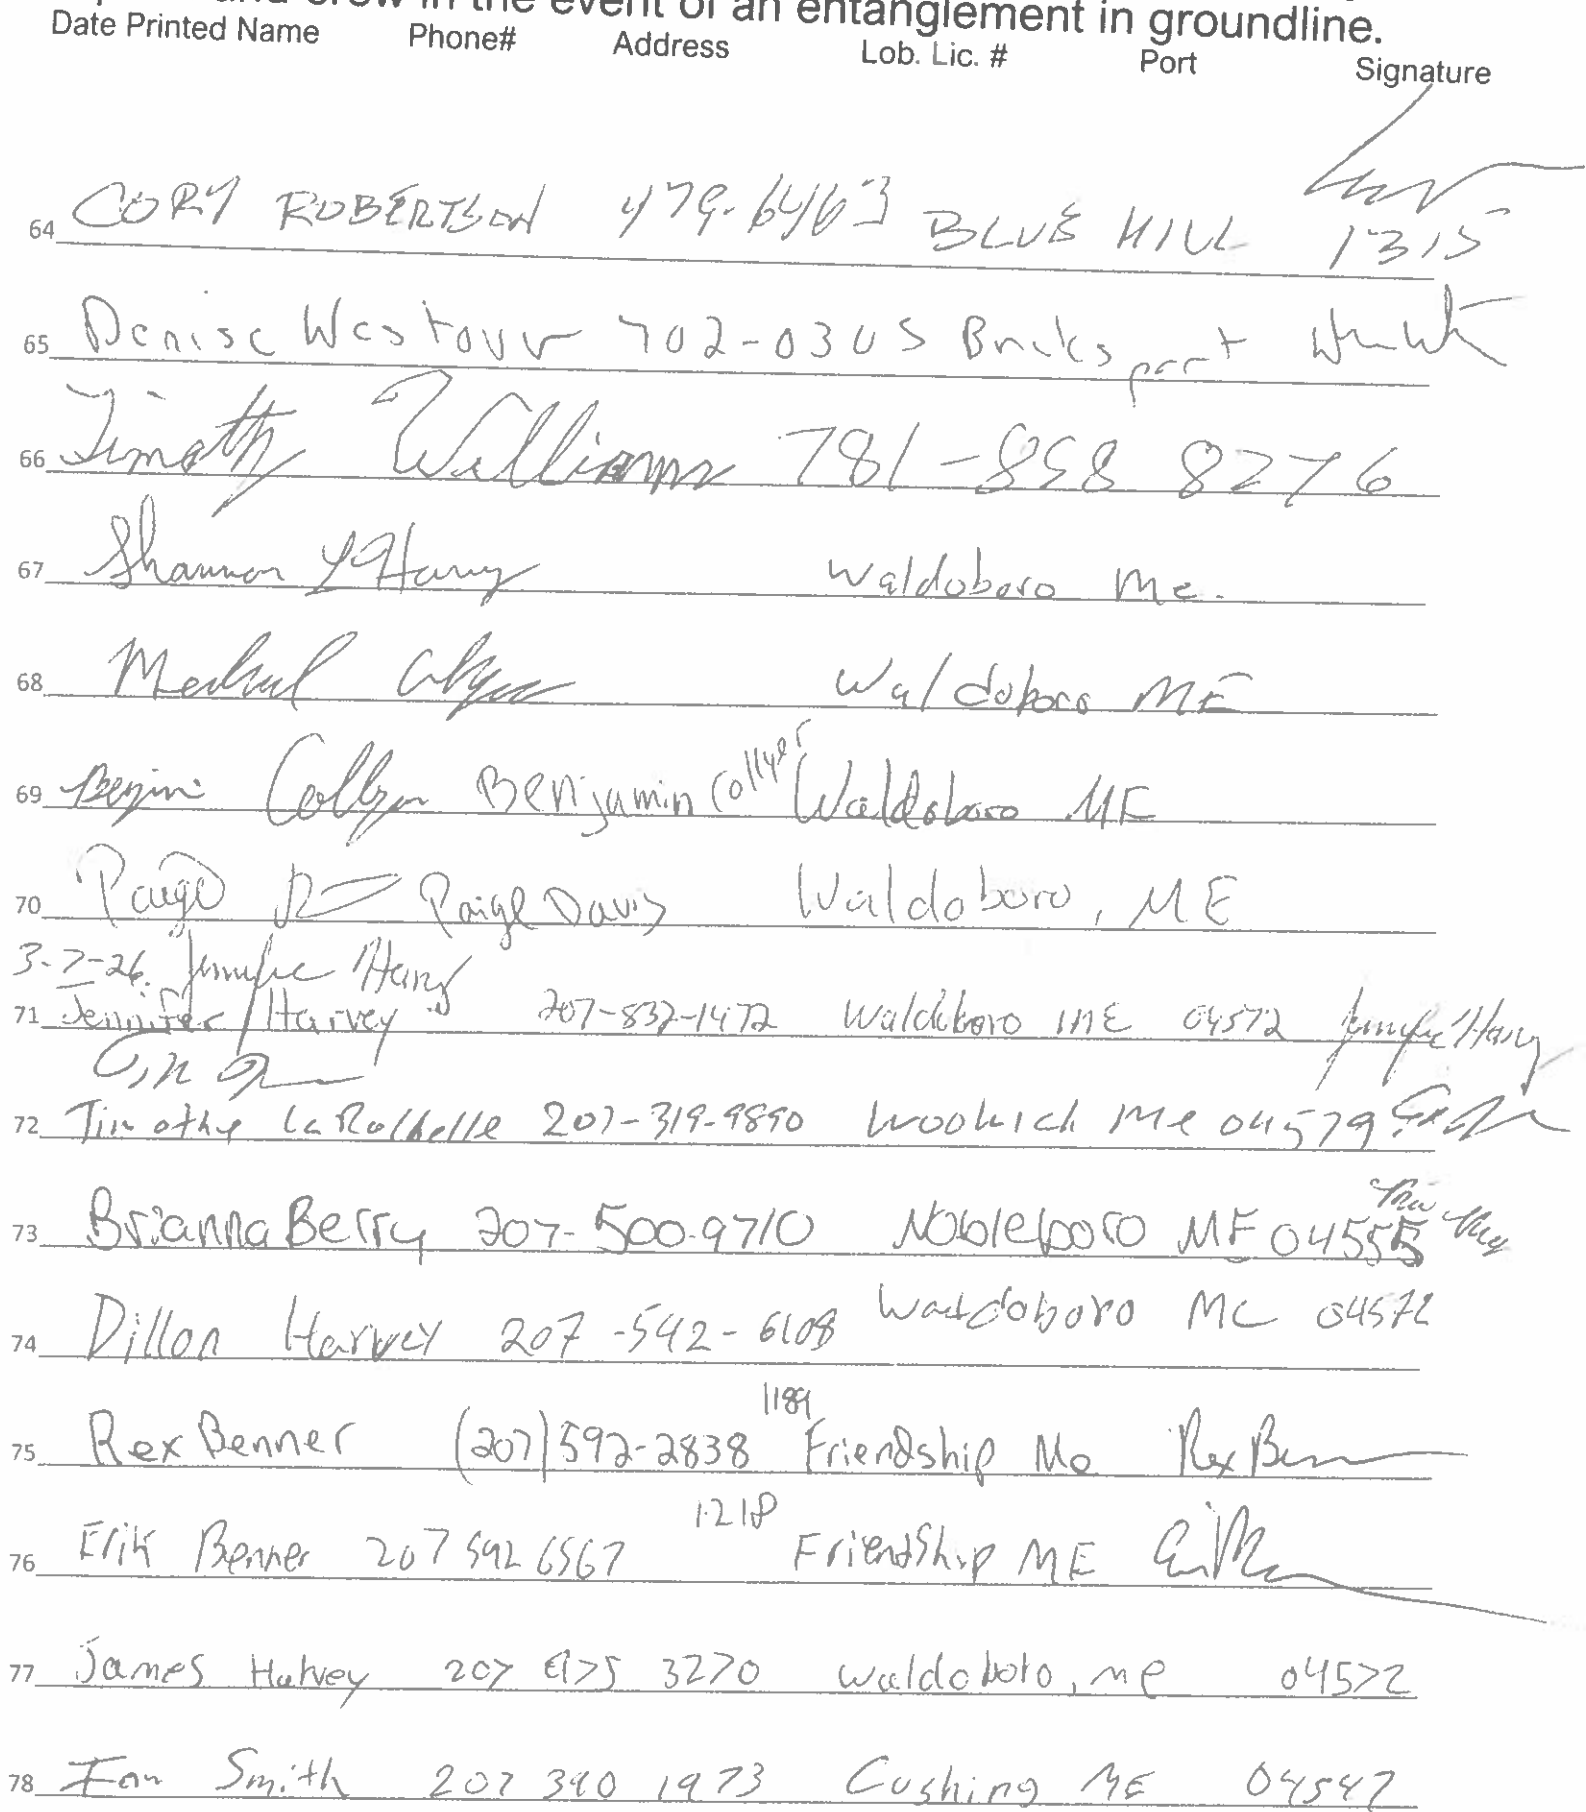 and crew in the event of an entanglement in groundline.
Date Printed Name Phone# Address Lob. Lic. # Port Signature
64 CORY ROBERTSON 479-6463 BLUE HILL 1315
65 Denise Westover 702-0305 Bucksport
66 Timothy Williams 781-858 8276
67 Shannon Harvey Waldoboro Me.
68 Waldoboro ME
69 Collyer Benjamin Collyer Waldoboro ME
70 Paige Paige Davis Waldoboro, ME
3-7-26. Jennifer Harvey
71 Jennifer Harvey 207-832-1472 Waldoboro ME 04572 Jennifer Harvey
72 Timothy LaRochelle 207-319-9890 Woolwich Me 04579
73 Brianna Berry 207-500-9710 Nobleboro ME 04555
74 Dillon Harvey 207-542-6108 Waldoboro Me 04572
1189
75 Rex Benner (207)592-2838 Friendship Me Rex Benner
1218
76 Erik Benner 207 592 6567 Friendship ME
77 James Harvey 207 975 3270 Waldoboro, me 04572
78 Ian Smith 207 390 1973 Cushing ME 04547